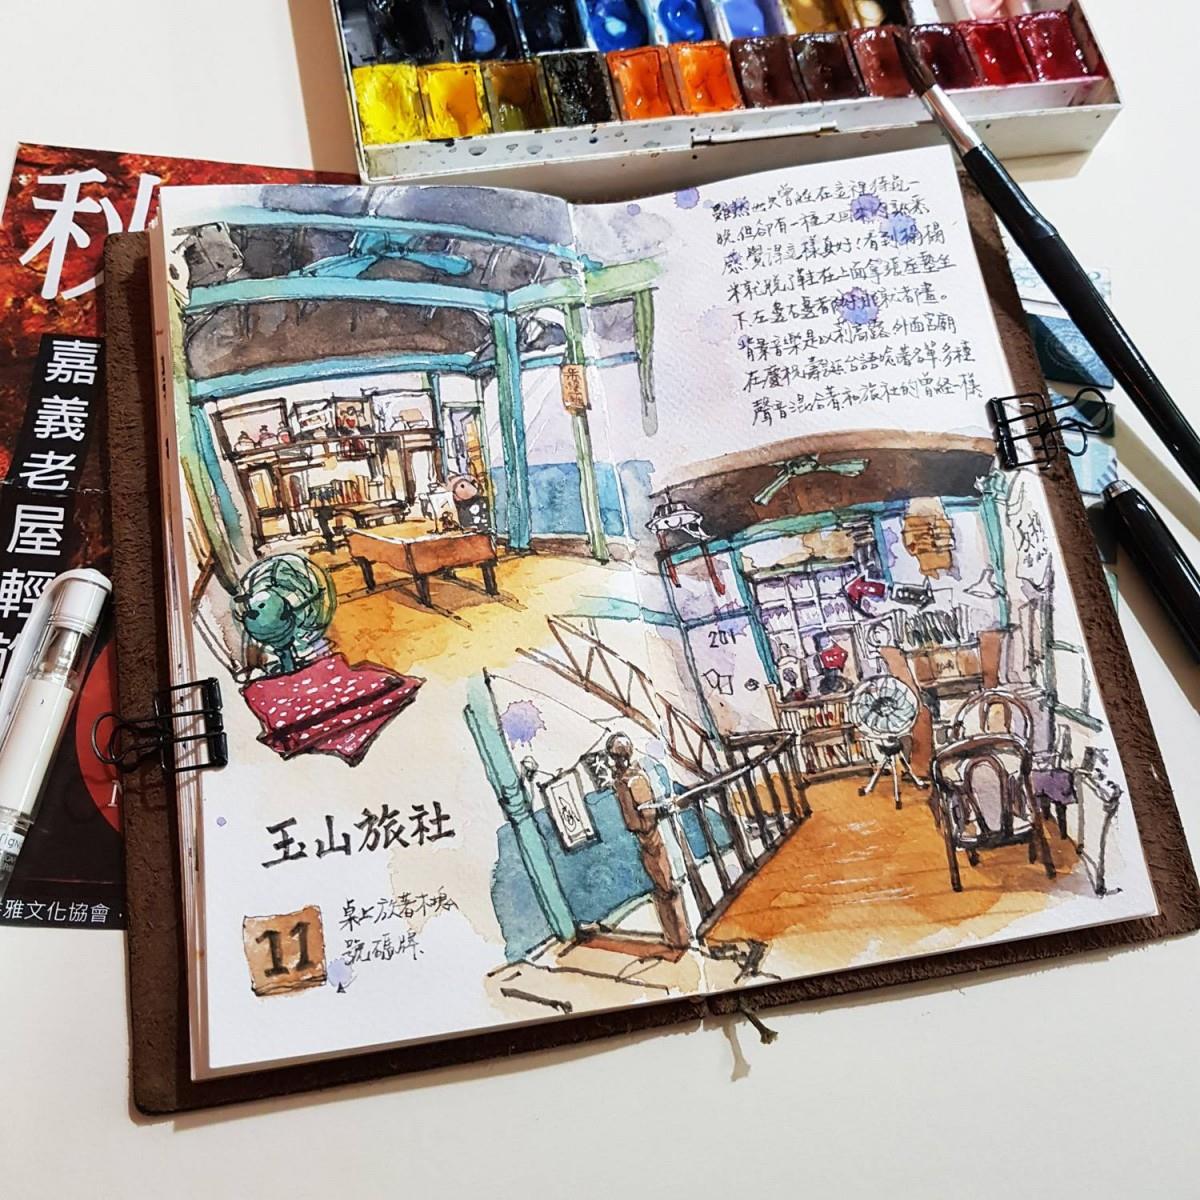 秋
嘉義老
屋輕旅
雅文化協會·
雖然也只曾經在這裡待過一
晚但卻有一種又回來的熟悉
感覺得這樣真好!看到榻榻
米就脫了鞋在上面拿張座墊坐
下左邊右邊都好
背景音樂是 外面宮廟
在慶祝壽誕台語 多種
聲音混合著和旅社的曾經一樣
201
玉山旅社
11
桌上放著木塊
號碼牌